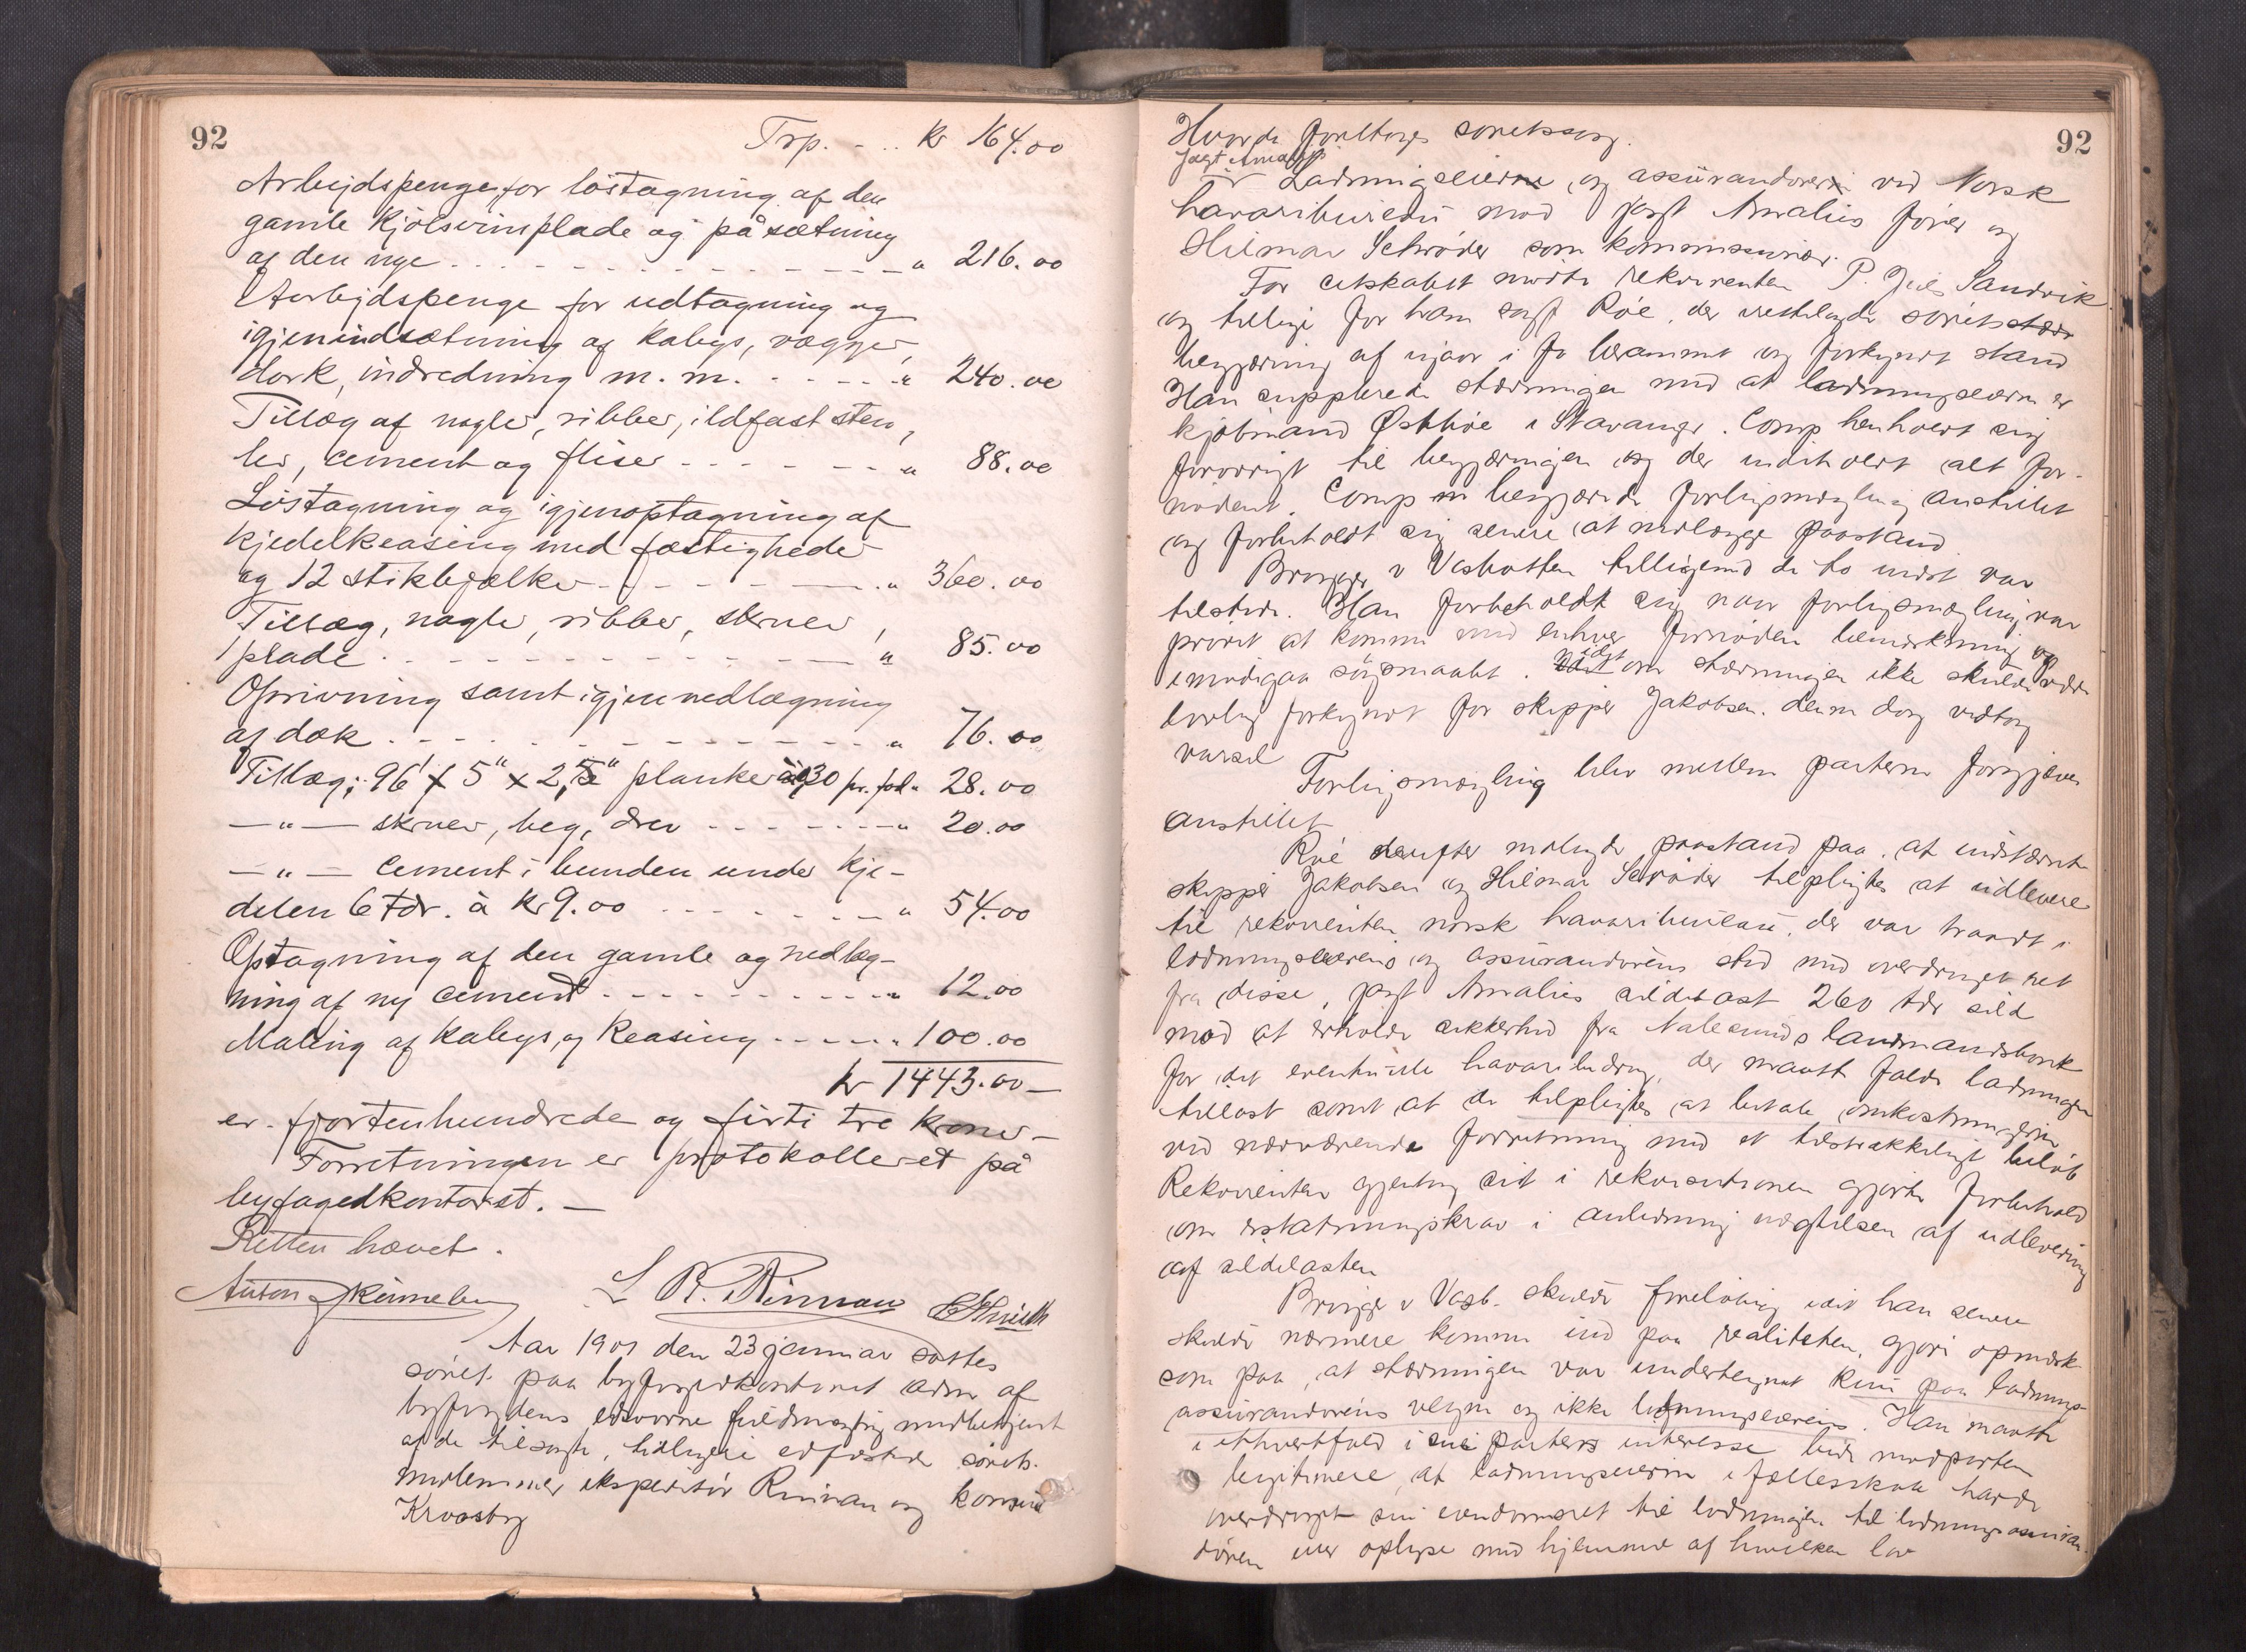 92
Trp. - .. kr 164.00
Arbejdspenge for løstagning af den
gamle kjølsvinplade og påsætning
af den nye " 216.00
Arbejdspenge for udtagning og
igjenindsætning af kabys, vægger,
dørk, indredning m.m. " 240.00
Tillæg af nagler, ribber, ildfast sten,
ler, cement og fliser " 88.00
Løstagning og igjenoptagning af
kjedelkeasing med fæstigheder
og 12 stikbjælker " 360.00
Tillæg, nagler, ribber, skruer,
1 plade " 85.00
Oprivning samt igjennedlægning
af dæk " 76.00
Tillæg: 96' x 5" x 2,5" planker à 0,30 pr. fod " 28.00
— " — skruer, beg, drev " 20.00
— " — cement i bunden under kje-
delen 6 tdr. à kr 9.00 " 54.00
Optagning af den gamle og nedlæg-
ning af ny cement " 12.00
Maling af kabys og keasing " 100.00
kr 1443.00 —
er - fjortenhundrede og firti tre kroner —
Forretningen er protokolleret på
byfogedkontoret. —
Retten hævet.
Anton L. R. Rinnan
Aar 1901 den 23 januar sattes
søret paa byfogedkontoret adm af
byfogdens edsvorne fuldmægtig medbetjent
af de tilsagte, tidligere edfæstede sørets-
medlemmer ekspeditør Rinnan og konsul
Kraasby
92
Hvorda foretoges søretssag.
Ladningseieren og assurandøren ved Norsk
havaribureau mod jagt Amalies fører og
Hilmar Schrøder som kommissionær.
For retskabet mødte rekvirenten P. Juel Sandvik
og tillige for ham sagf Röe, der irettelagde
begjæring af igaar i fo berammet og forkyndt stand
Han supplerede stævningen med at ladningseieren er
kjøbmand i Stavanger. Comp henholdt sig
forøvrigt til begjæringen og der indeholdt alt for-
nødent. Comp begjærede forligsmægling anstillet
og forbeholdt sig senere at nedlægge paastand
Brügger v Vasbotten tilligemed de to indst var
tilstede. Han forbeholdt sig naar forligsmægling var
prøvet at komme med enhver fornøden bemærkning og
imødegaa søgsmaalet. idet om stævningen ikke skulde være
lovlig forkyndt for skipper Jakobsen. denne dog vedtog
varsel
Forligsmægling blev mellem parterne forgjæves
anstillet
Röe derefter nedlagde paastand paa, at indstævnte
skipper Jakobsen og Hilmar Schrøder tilpligtes at udlevere
til rekvirenten norsk havaribureau, der var traadt i
ladningseierens og assurandørens sted med overdraget ret
fra disse, jagt Amalies sildelast 260 tdr sild
mod at erholde sikkerhed fra Aalesunds landmandsbank
for det eventuelle havaribidrag, der maatte falde ladningen
tillast samt at de tilpligtes at betale omkostningerne
ved nærværende forretning med et tilstrækkeligt beløb
Rekvirenten gjentog sit i rekvisitionen gjorte forbehold
om erstatningskrav i anledning nægtelsen af udlevering
af sildelasten
Brügger v Vasb. skulde foreløbig idet han senere
skulde nærmere komme ind paa realiteten, gjøre opmærk-
som paa, at stævningen var undertegnet kun paa ladnings-
assurandørens vegne og ikke ladningseierens. Han maatte
i ethvertfald i sin parters interesse bede modparten
legitimere, at ladningseieren i fællesskab havde
overdraget sin eiendomsret til ladningen til ladningsassuran-
døren eller oplyse med hjemmel af hvilken lov